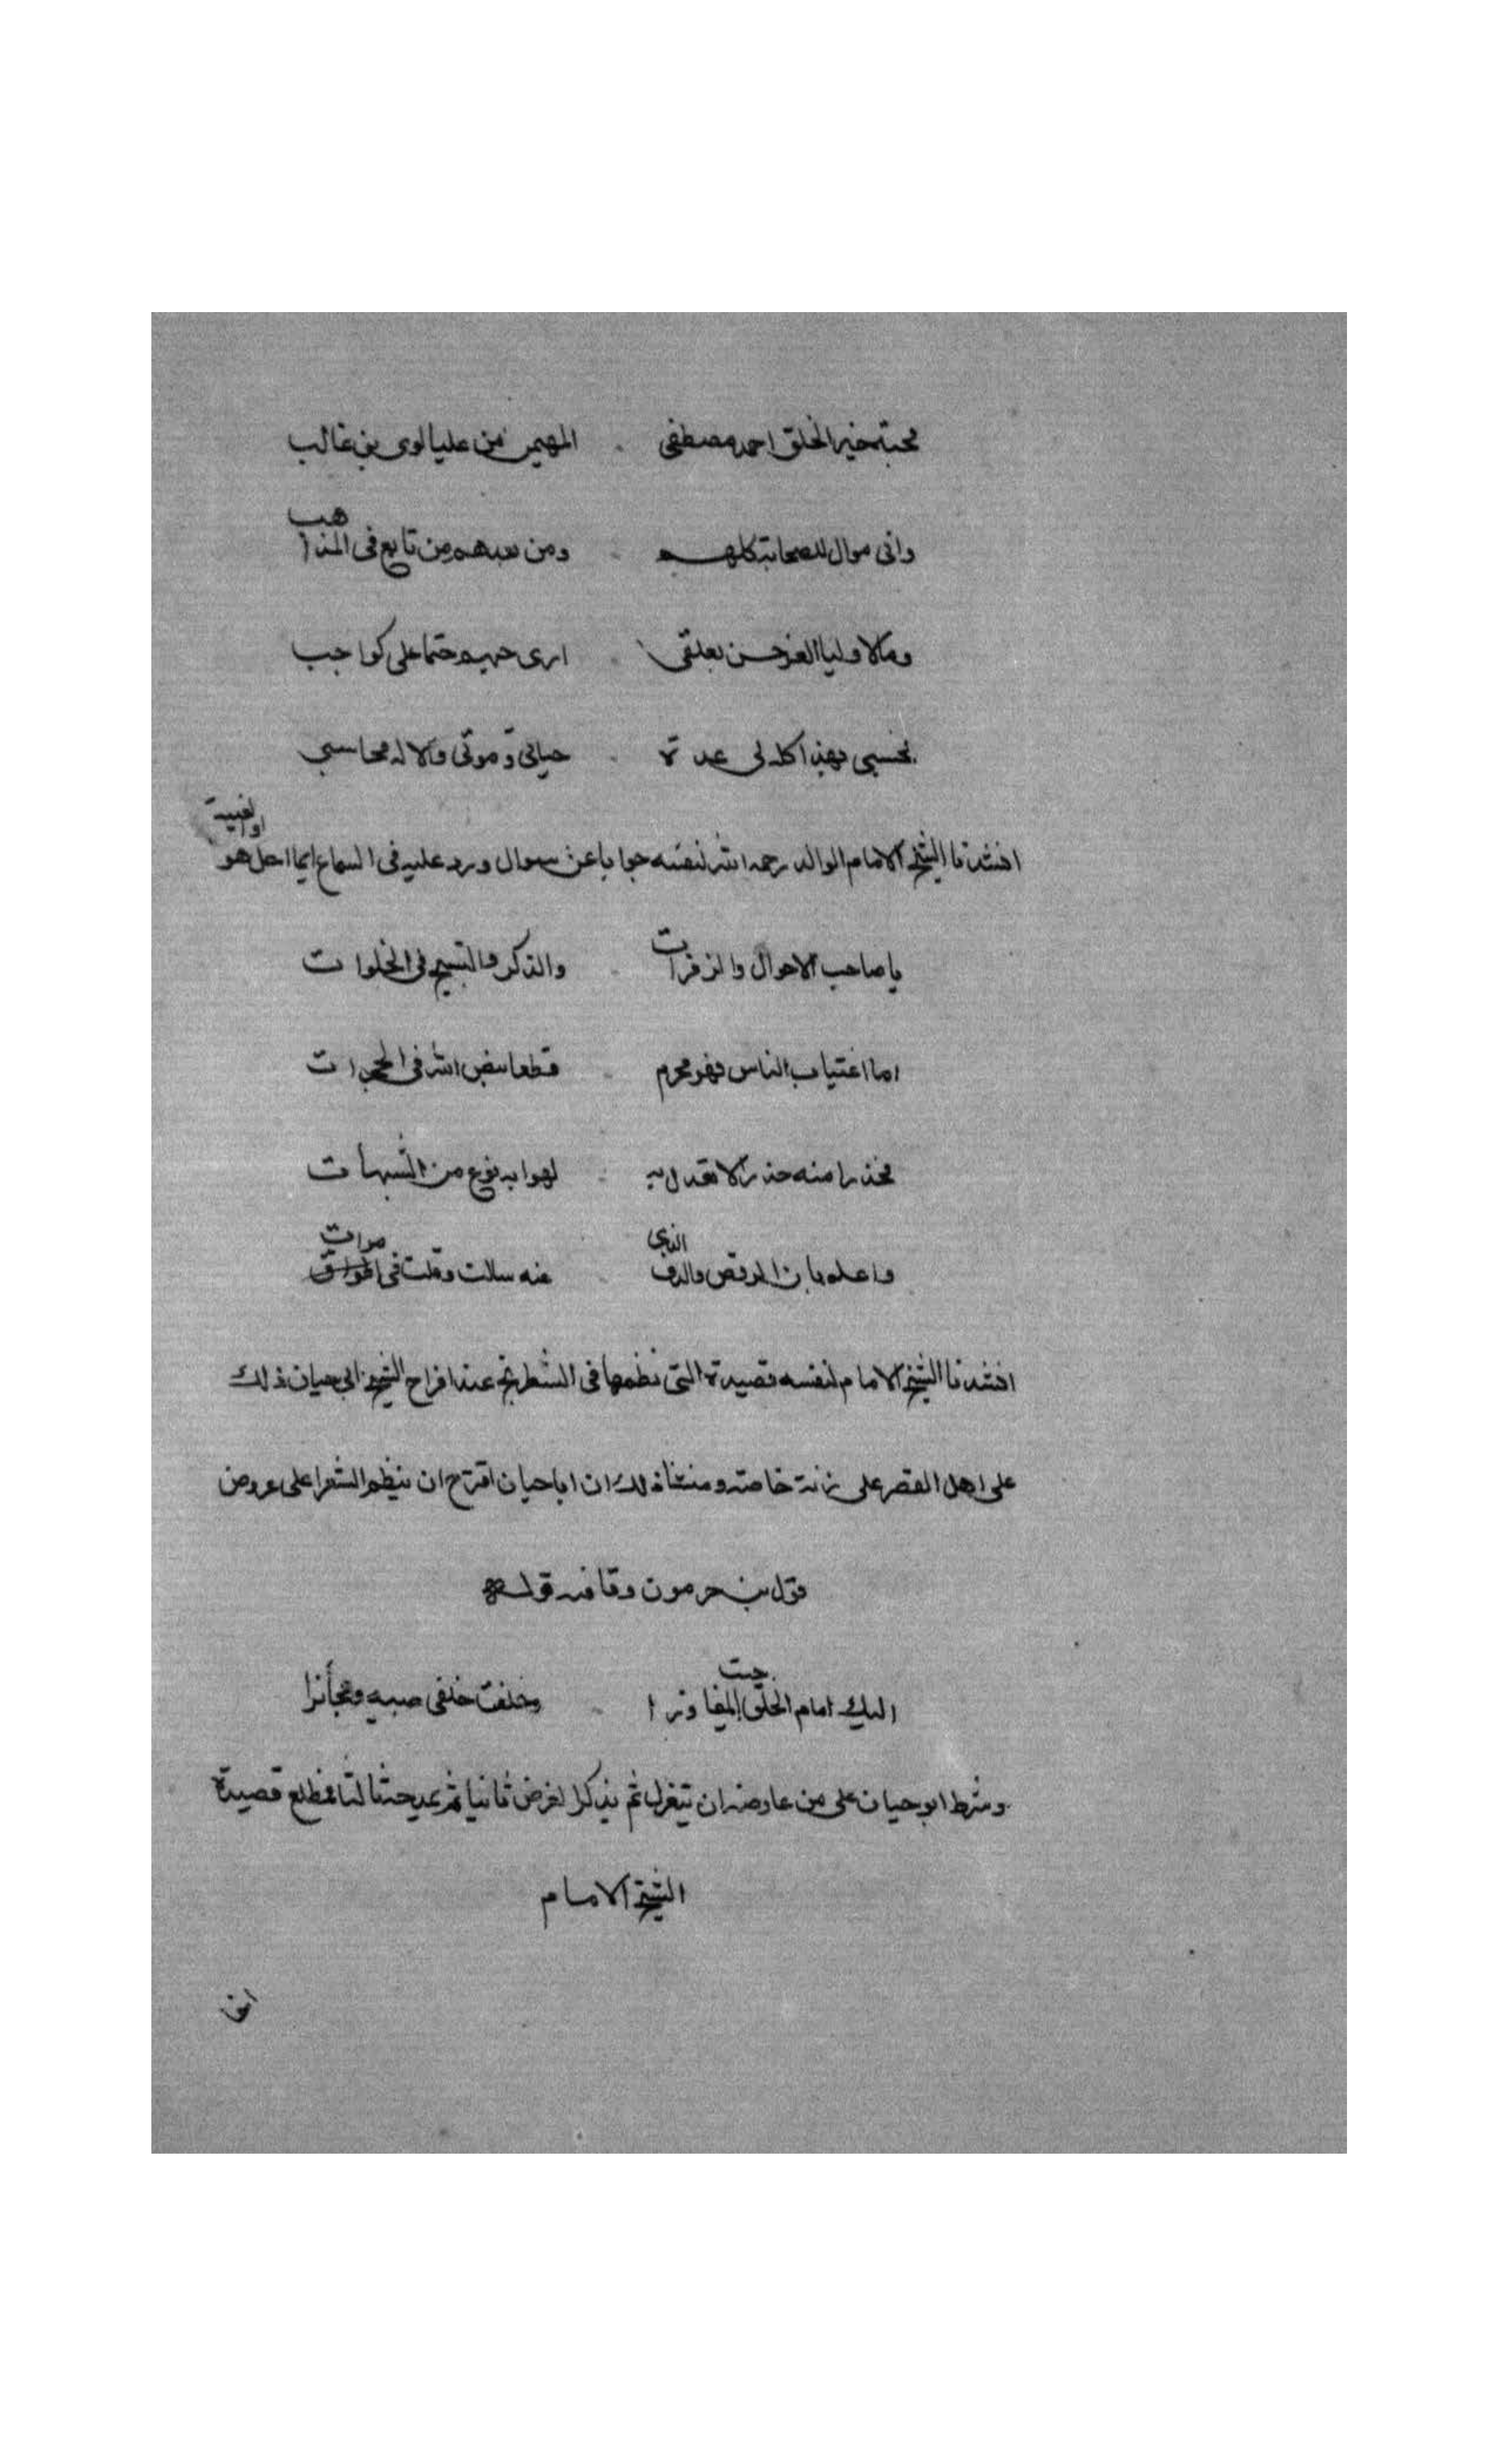 محبة خير الخلق احمد مصطفى المهيمن من عليا لوى بن غالب
وانى موال للصحابة كلهم ومن بعدهم من تابع فى المذاهب
وبالاوليا الغر حسن تعلقى ارى حبهم حتما على كواجب
فحسبى بهذا كله لى عدة حياتى وموتى والاله محاسبى
انشدنا الشيخ الامام الوالد رحمه الله لنفسه جوابا عن سوال ورد عليه فى السماع ايما احل هو او الغيبة
يا صاحب الاحوال والزفرات والذكر والتسبيح فى الخلوات
اما اغتياب الناس فهو محرم قطعا بنص الله فى الحجرات
فحذار منه حذار لا تعدل به لهوا به نوع من الشبهات
واعلم بان الرقص والدف الذى عنه سالت وقلت فى مرات
انشدنا الشيخ الامام لنفسه قصيدة التى نظمها فى الشطرنج عند افراح الشيخ ابى حيان ذلك
على اهل العصر على زنة خاصة ومنشأ ذلك ان ابا حيان اقترح ان ينظم الشعرا على عروض
قول بن حرمون وقافيه قوله
اليك امام الخلق جبت المفاوزا وخلفت خلفى صبية وعجائزا
وشرط ابو حيان على من عارضه ان يتغزل ثم يذكر الغرض ثانيا ثم يمدحه ثالثا فمطلع قصيدة
الشيخ الامام